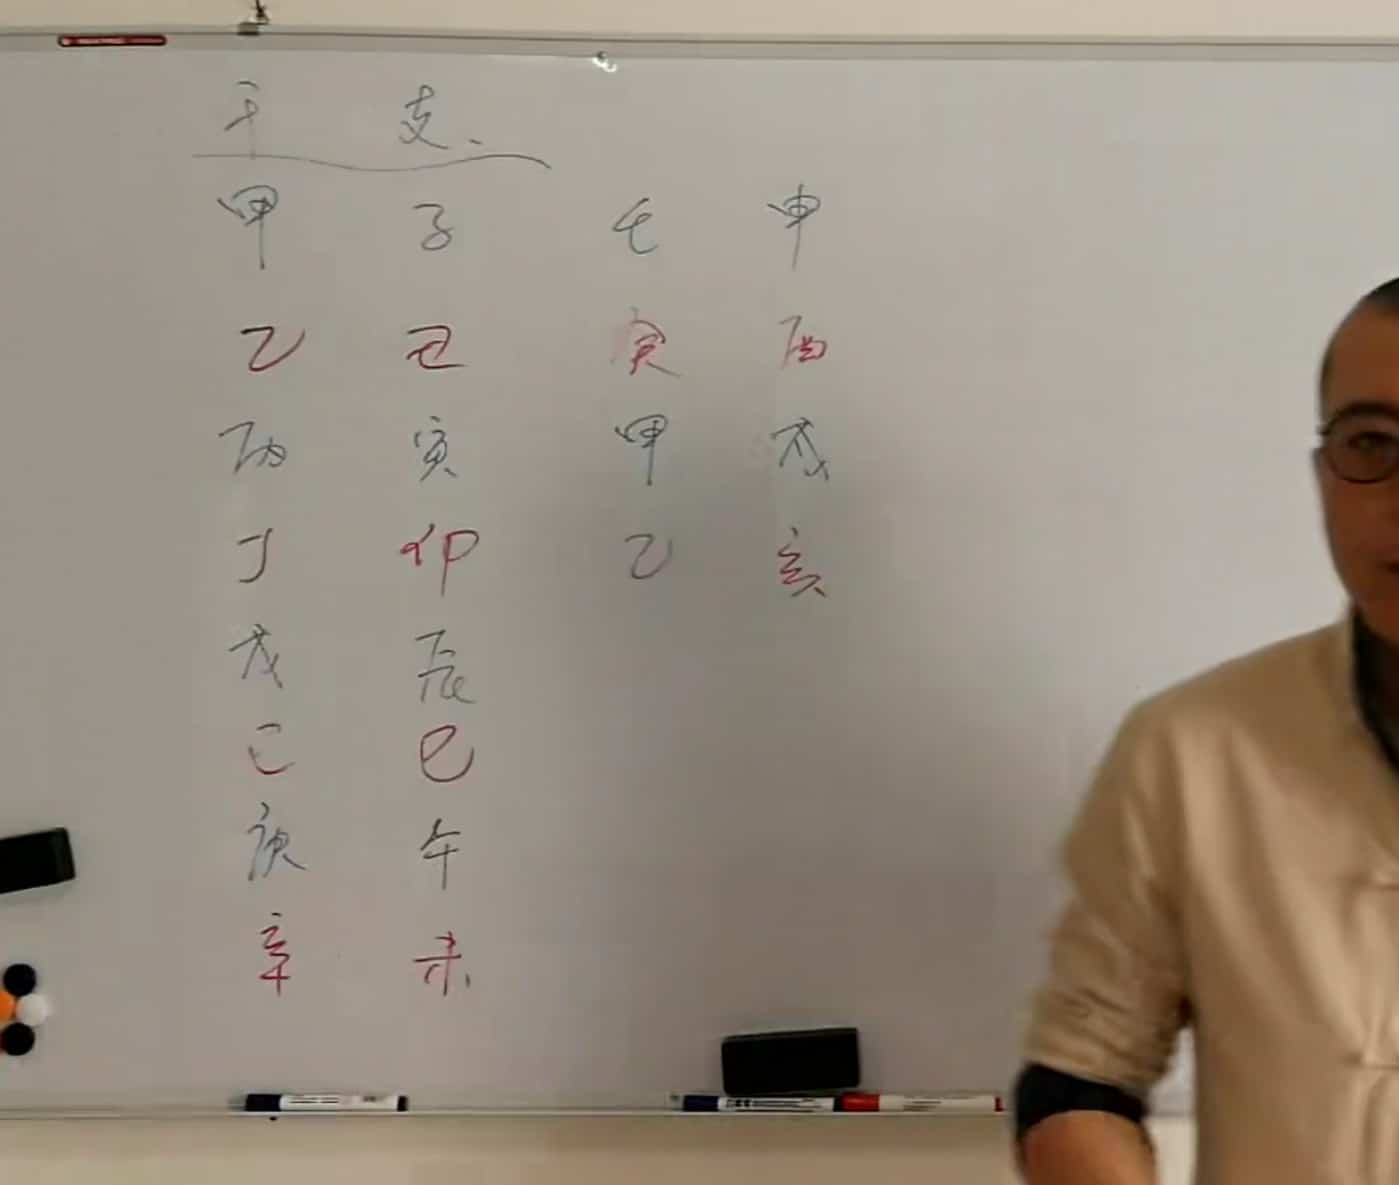 干 支、
甲 子
乙 丑
丙 寅
丁 卯
戊 辰
己 巳
庚 午
辛 未
壬 申
寅 酉
甲 戌
乙 亥